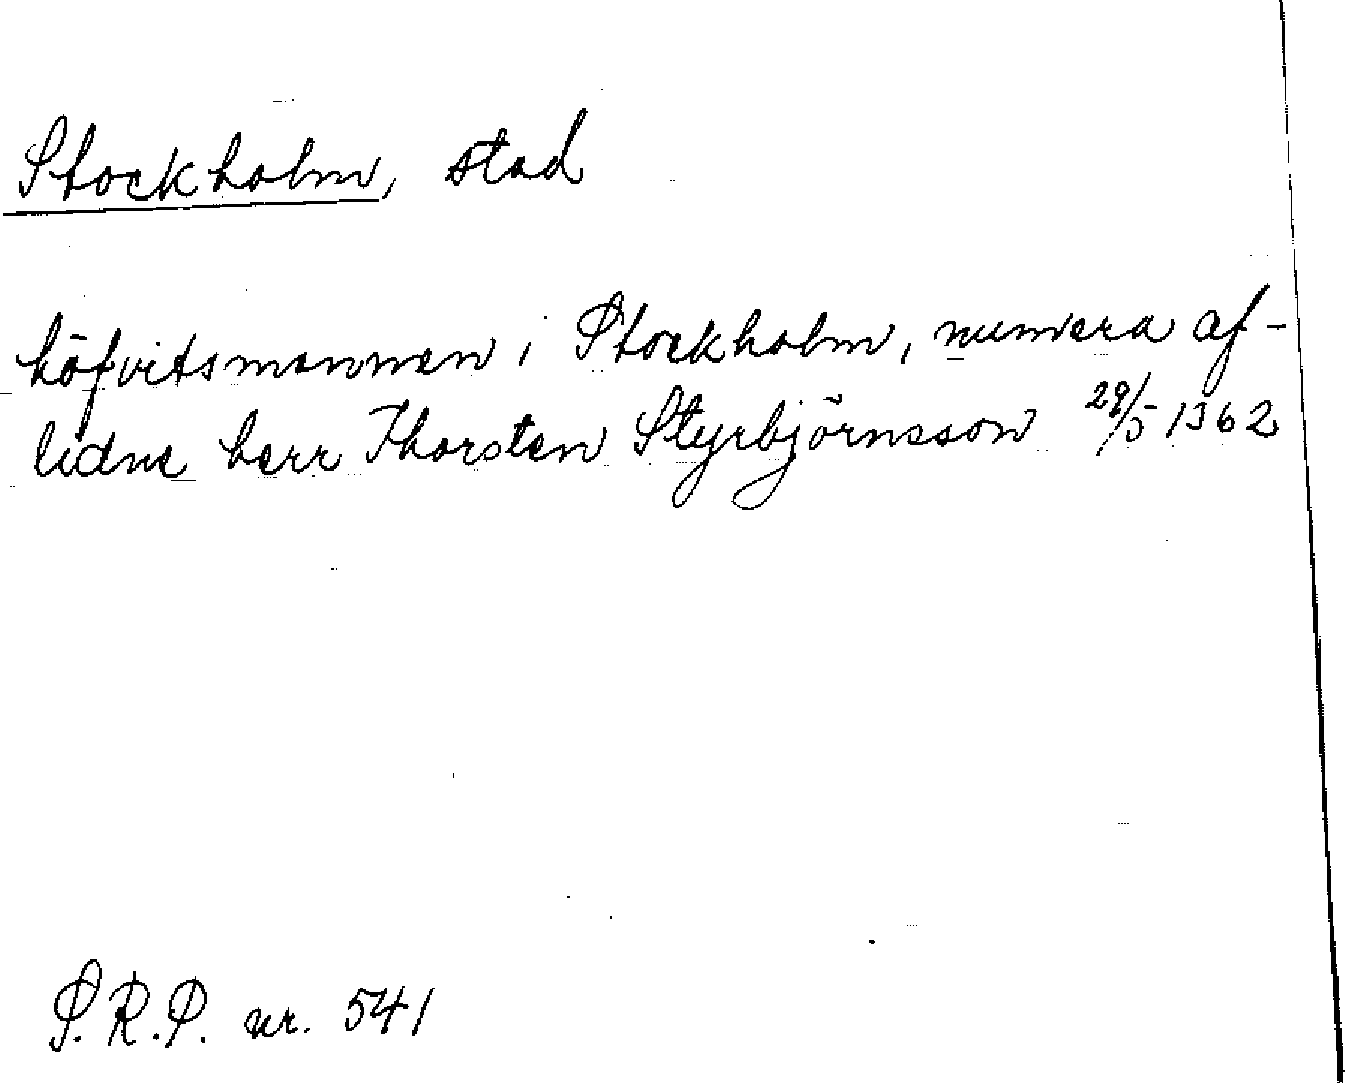 Stockholm, stad
höfvitsmannen i Stockholm, numera af-
lidne herr Thorsten Styrbjörnsson 29/5 1362
S.R.P. nr. 541